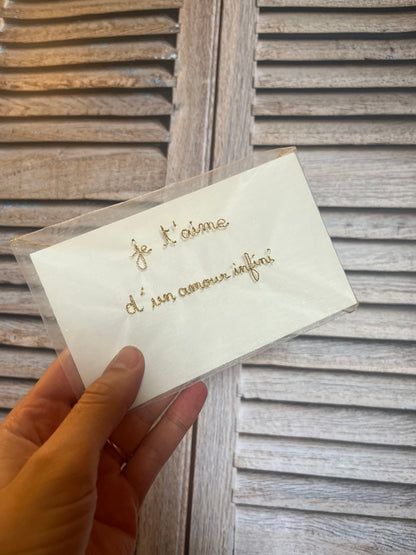 je t'aime
d'un amour infini